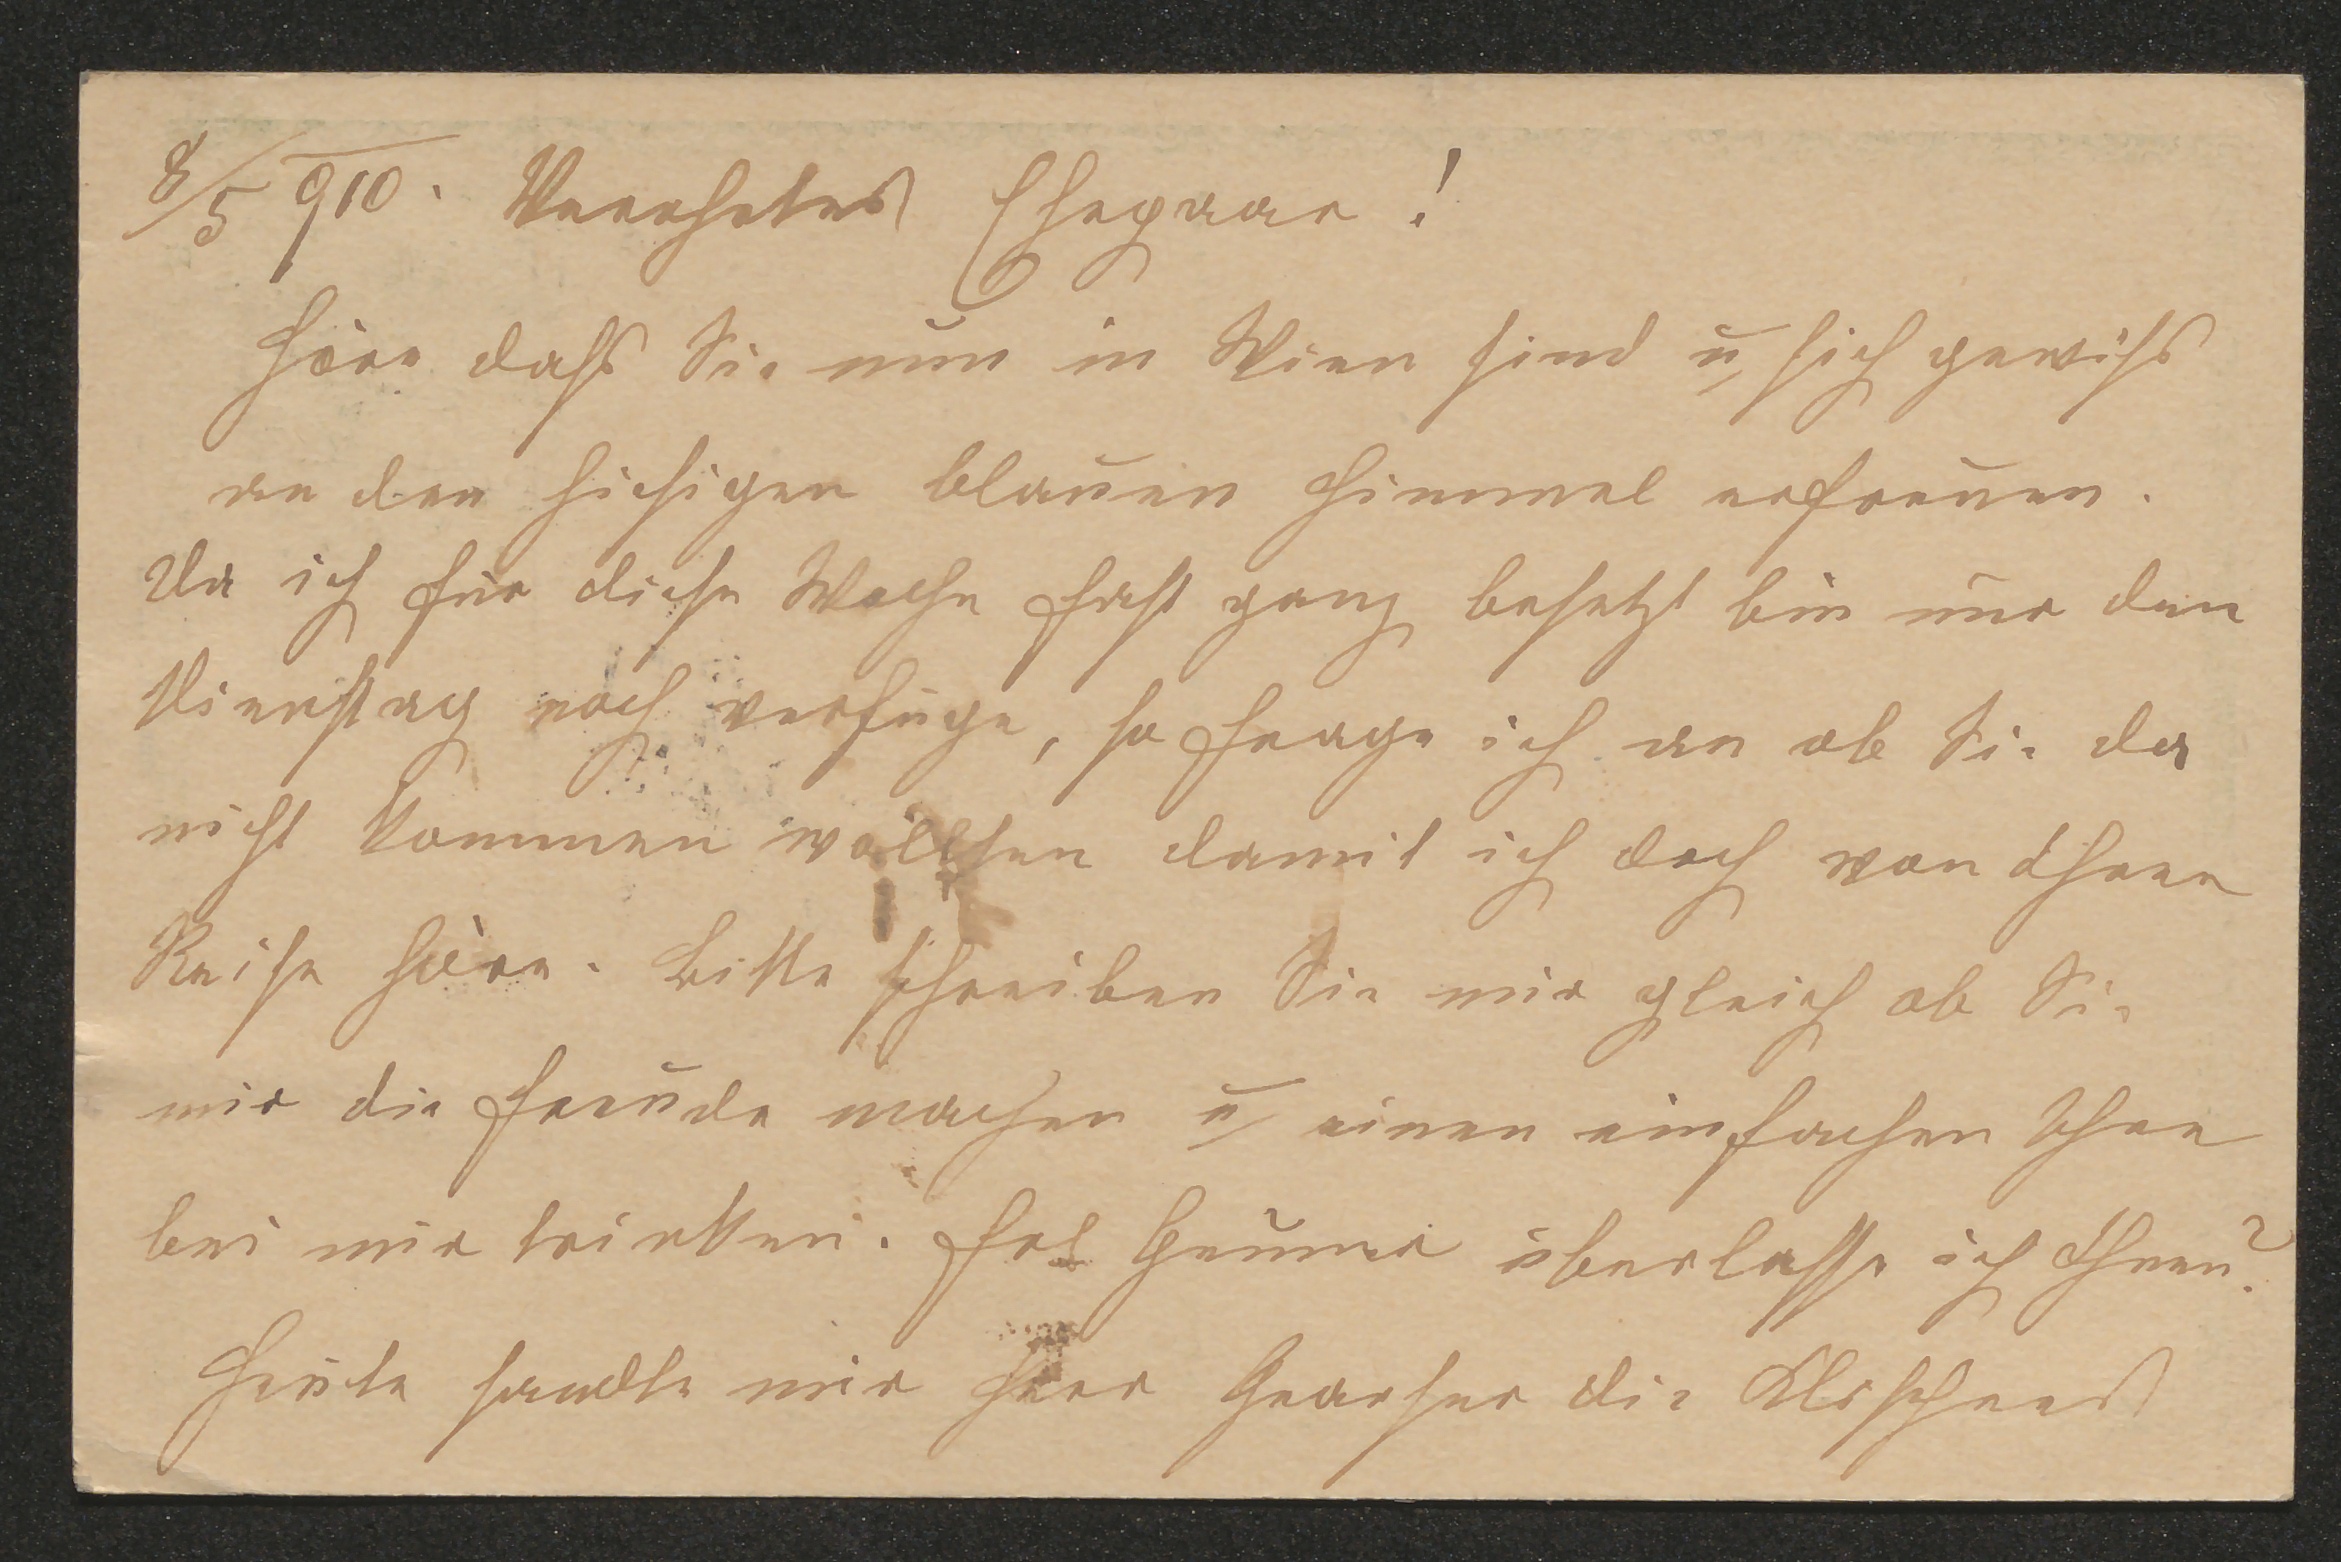 8/5 910. Verehrtes Ehepaar!
Höre dass Sie nun in Wien sind u, sich gewiss
an den hiesigen blauen Himmel erfreuen.
Da ich für diese Woche fast ganz besetzt bin nur den
Dienstag noch verfüge, so frage ich an ob Sie da
nicht kommen wollten damit ich doch von Ihrer
Reise höre. Bitte schreiben Sie mir gleich ob Sie
mir die Freude machen u, einen einfachen Thee
bei mir trinken. Frl überlasse ich Ihnen?
Heute sandte mir Herr die